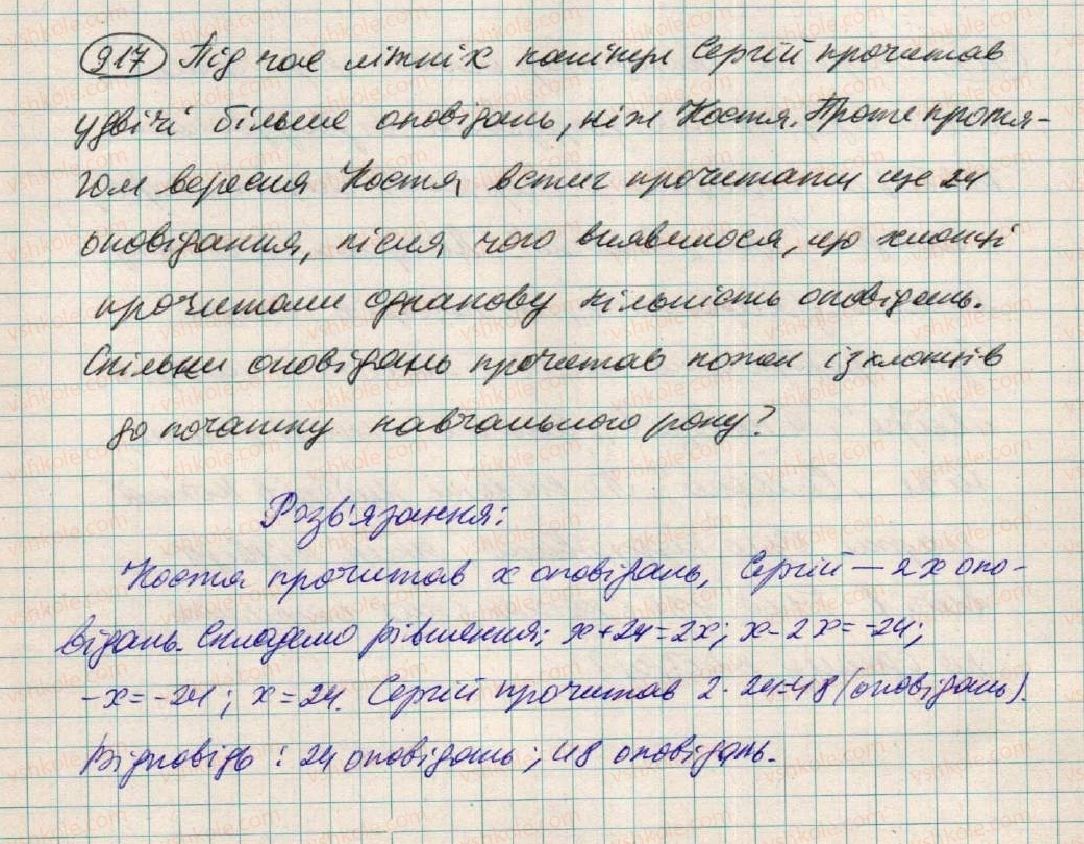 917 Під час літніх канікул Сергій прочитав
удвічі більше оповідань, ніж Костя. Проте протя-
гом вересня Костя встиг прочитати ще 24
оповідання, після чого виявилося, що хлопці
прочитали однакову кількість оповідань.
Скільки оповідань прочитав кожен із хлопців
до початку навчального року?
Розв'язання:
Костя прочитав x оповідань, Сергій — 2x опо-
відань. Складемо рівняння: x + 24 = 2x; x - 2x = -24;
-x = -24; x = 24. Сергій прочитав 2 · 24 = 48 (оповідань).
Відповідь: 24 оповідань; 48 оповідань.